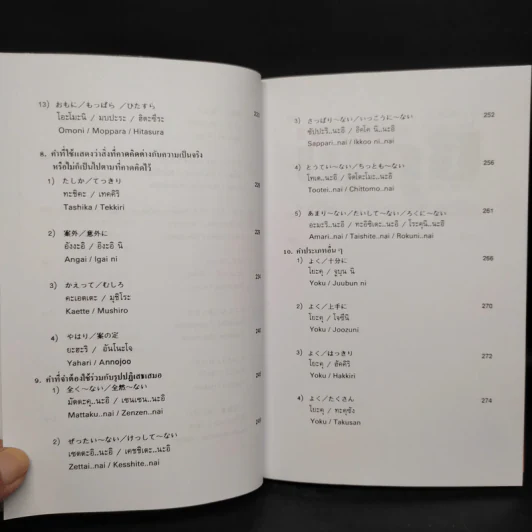 13) おもに／もっぱら ／ひたすら
โอะโมะนิ / มบปะระ / ฮิตะซึระ
Omoni / Moppara / Hitasura
๘. คำที่ใช้แสดงว่าสิ่งที่คาดคิดต่างกับความเป็นจริง
หรือไม่ก็เป็นไปตามที่คาดคิดไว้
1) たしか／てっきり
ทะชิคะ / เทคคิริ
Tashika / Tekkiri
2) 案外／意外に
อังงะอิ / อิงะอิ นิ
Angai / Igai ni
3) かえって／むしろ
คะเอตเตะ / มุชิโระ
Kaette / Mushiro
4) やはり／案の定
ยะฮะริ / อันโนะโจ
Yahari / Annojoo
๙. คำที่จำต้องใช้ร่วมกับรูปปฏิเสธเสมอ
1) 全く～ない／全然～ない
มัตตะคุ..นะอิ / เซนเซน..นะอิ
Mattaku..nai / Zenzen..nai
2) ぜったい～ない／けっして～ない
เซตตะอิ..นะอิ / เคชชิเตะ..นะอิ
Zettai..nai / Kesshite..nai
3) さっぱり～ない／いっこうに～ない 252
ซัปปริ..นะอิ / อิคโค นิ..นะอิ
Sappari..nai / Ikkoo ni..nai
4) とうてい～ない／ちっとも～ない 256
โทเต..นะอิ / จิตโตะโมะ..นะอิ
Tootei..nai / Chittomo..nai
5) あまり～ない／たいして～ない／ろくに～ない 261
อะมะริ..นะอิ / ทะอิชิเตะ..นะอิ / โระคุนิ..นะอิ
Amari..nai / Taishite..nai / Rokuni..nai
๑๐. คำประเภทอื่น ๆ
1) よく／十分に 268
โยะคุ / จูบุน นิ
Yoku / Juubun ni
2) よく／上手に 270
โยะคุ / โจซึนิ
Yoku / Joozuni
3) よく／はっきり 272
โยะคุ / ฮัคคิริ
Yoku / Hakkiri
4) よく／たくさん 274
โยะคุ / ทะคุซัง
Yoku / Takusan